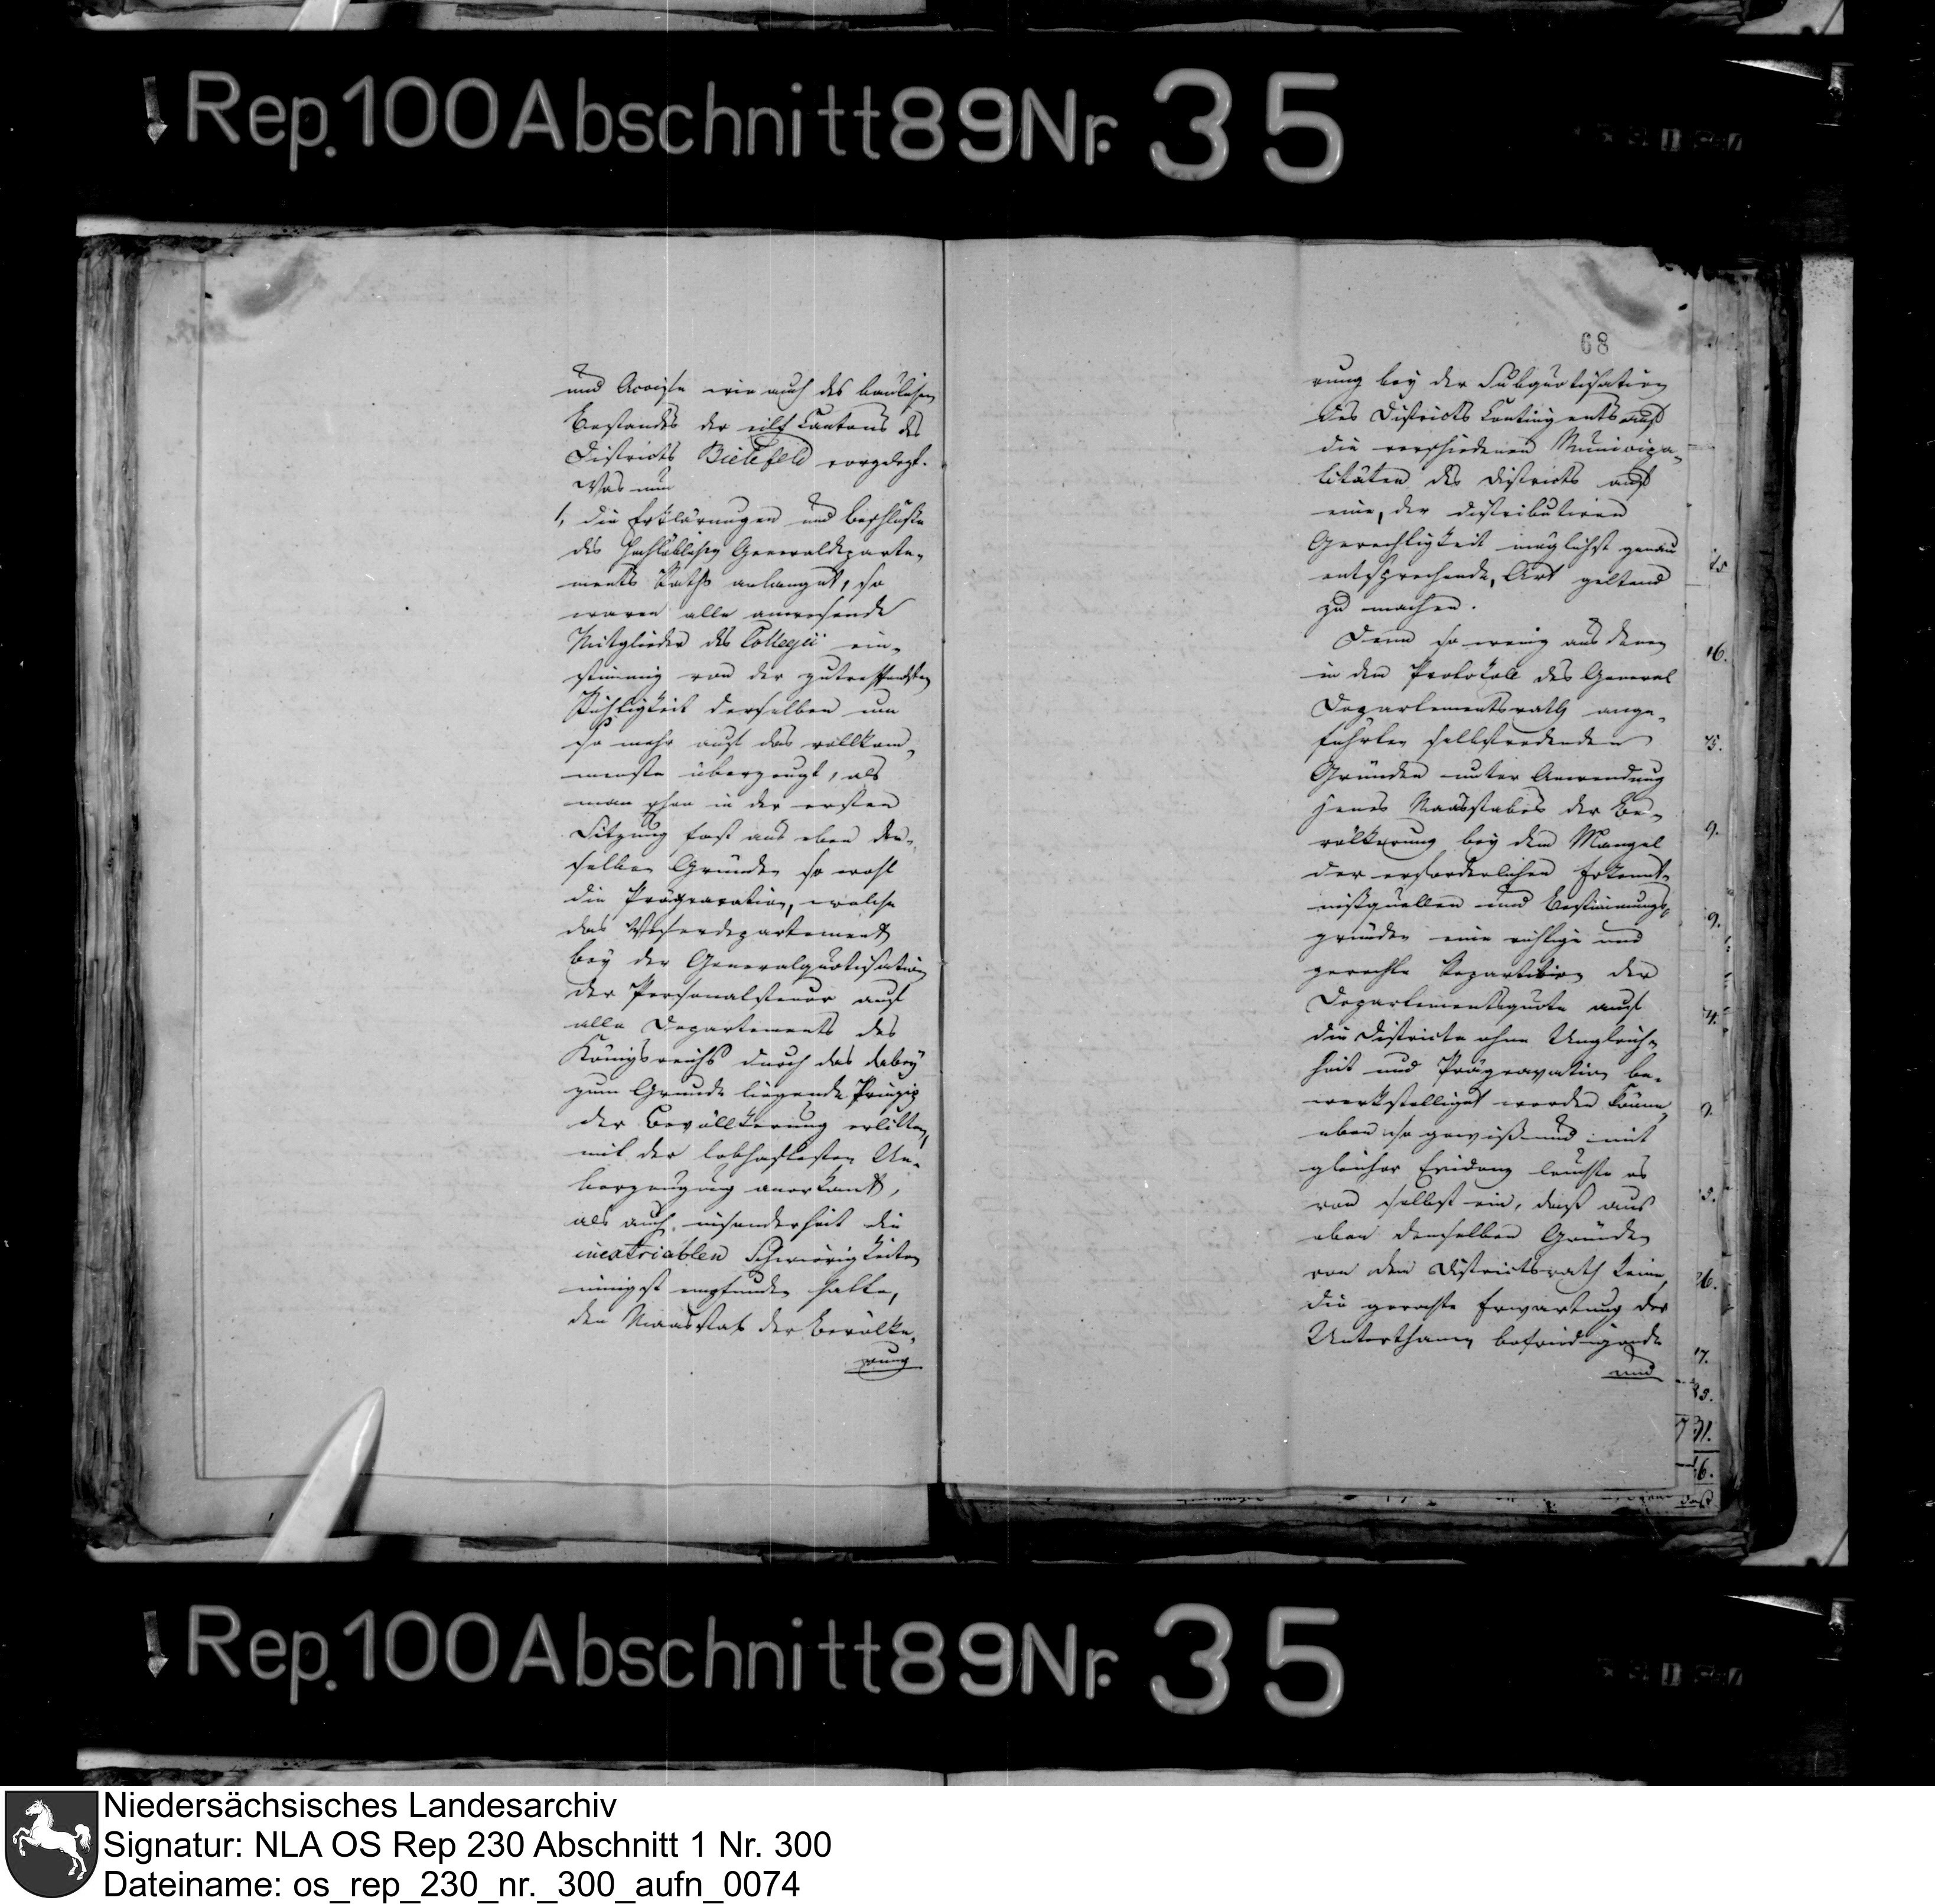 Rep. 100 Abschnitt 89 Nr. 35
und Accise wie auch des baulichen
Bestandes der eilf Cantons des
Districts Bielefeld vorgelegt.
Was nun
1, die Erklärungen und Beschlüsse
des Hochlöblichen Generaldeparte-
ments Raths anlangt, so
waren alle anwesende
Mitglieder des Collegii ein-
stimmig von der zutreffendsten
Richtigkeit derselben um
so mehr auf das vollkom-
menste überzeugt, als
man schon in der ersten
Sitzung fast aus eben den-
selben Gründen so wohl
die Prägravation, welche
das Weserdepartement
bey der Generalquotisation
der Personalsteuer auf
alle Departements des
Königreichs durch das dabey
zum Grunde liegende Prinzip
der Bevöllkerung erlitten,
mit der lebhaftesten Ue-
berzeugung anerkant,
als auch insonderheit die
inextriablen Schwierigkeiten
innigst empfunden hatte,
den Maasstab der Bevölke-
rung
68
rung bey der Subquotisation
des Districts Contingents auf
die verschiedenen Municipa-
litäten des Districts auf
eine, der distributiven
Gerechtigkeit möglichst genau
entsprechende, Art geltend
zu machen.
Denn so wenig aus denen
in dem Protokoll des General
Departementsraths ange-
führten selbstredenden
Gründen unter Anwendung
jenes Maasstabes der Be-
völkerung bey dem Mangel
der erforderlichen Erkennt-
nißquellen und Bestimmungs-
gründe eine richtige und
gerechte Repartition der
Departementsquote auf
die Districte ohne Ungleich-
heit und Prägravation be-
werkstelliget werden könne,
eben so gewiß und mit
gleicher Evidenz leuchte es
von selbst ein, daß aus
eben denselben Gründen
von dem Districtsrath keine,
die gerechte Erwartung der
Unterthanen befriedigende
und
15
16.
75.
9.
9.
4.
9.
3.
26.
17.
23.
31.
16.
daß
Rep. 100 Abschnitt 89 Nr. 35
Niedersächsisches Landesarchiv
Signatur: NLA OS Rep 230 Abschnitt 1 Nr. 300
Dateiname: os_rep_230_nr._300_aufn_0074